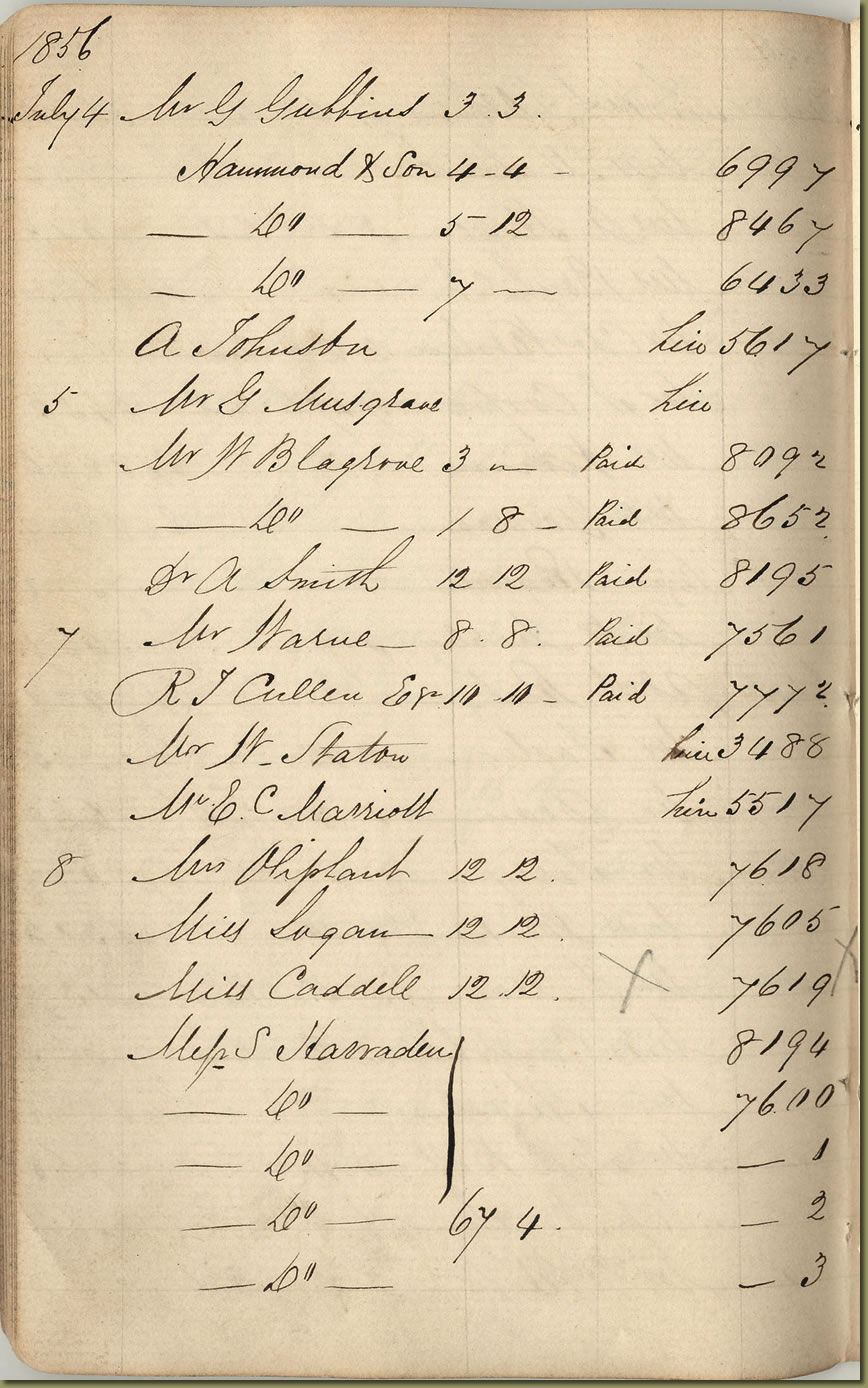 1856
July 4 Mr G Gubbins 3 . 3 .
Hammond & Son 4 - 4 - 6997
— Do — 5 12 8467
— Do — 7 — 6433
A Johnston 5617
5 Mr G Musgrave
Mr W Blagrove 3 — Paid 8092
— Do — 1 8 - Paid 8652
Dr A Smith 12 12 Paid 8195
7 Mr Warne — 8 . 8 . Paid 7561
R J Cullen Esqr 10 10 - Paid 7772
Mr W. Staton 3488
Mr. E. C Marriott 5517
8 Mrs Oliphant 12 12 . 7618
Miss Logan — 12 12 . 7605
Miss Caddell 12 . 12 . X 7619
Messrs S Harraden 8194
— Do — 7600
— Do — — 1
— Do — 67 4 . — 2
— Do — — 3